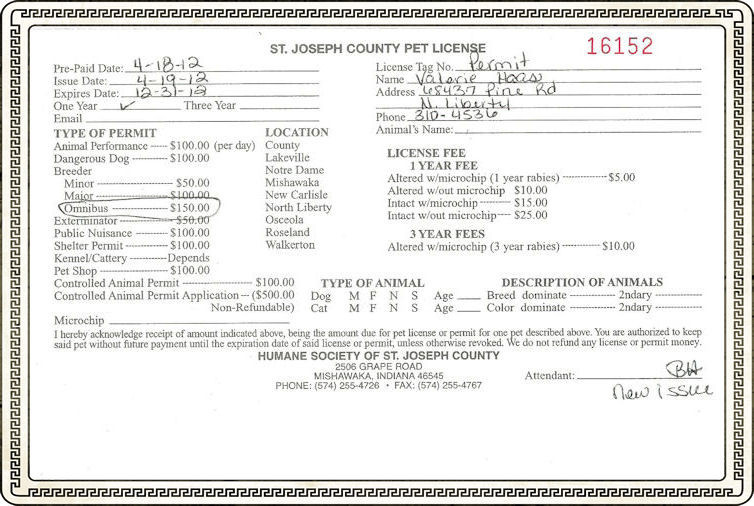 ST. JOSEPH COUNTY PET LICENSE
16152
Pre-Paid Date: 4-18-12
Issue Date: 4-19-12
Expires Date: 12-31-12
One Year ✓ Three Year
Email
License Tag No. Permit
Name Valerie Haas
Address 68437 Pine Rd
N. Liberty
Phone 310-4536
Animal's Name:
TYPE OF PERMIT
Animal Performance ----- $100.00 (per day)
Dangerous Dog ----- $100.00
Breeder
Minor ----- $50.00
Major ----- $100.00
Omnibus ----- $150.00
Exterminator ----- $50.00
Public Nuisance ----- $100.00
Shelter Permit ----- $100.00
Kennel/Cattery ----- Depends
Pet Shop ----- $100.00
Controlled Animal Permit ----- $100.00
Controlled Animal Permit Application -- ($500.00
Non-Refundable)
Microchip
LOCATION
County
Lakeville
Notre Dame
Mishawaka
New Carlisle
North Liberty
Osceola
Roseland
Walkerton
LICENSE FEE
1 YEAR FEE
Altered w/microchip (1 year rabies) ----- $5.00
Altered w/out microchip $10.00
Intact w/microchip ----- $15.00
Intact w/out microchip ---- $25.00
3 YEAR FEES
Altered w/microchip (3 year rabies) ----- $10.00
TYPE OF ANIMAL
Dog M F N S Age
Cat M F N S Age
DESCRIPTION OF ANIMALS
Breed dominate ----- 2ndary -----
Color dominate ----- 2ndary -----
I hereby acknowledge receipt of amount indicated above, being the amount due for pet license or permit for one pet described above. You are authorized to keep
said pet without future payment until the expiration date of said license or permit, unless otherwise revoked. We do not refund any license or permit money.
HUMANE SOCIETY OF ST. JOSEPH COUNTY
2506 GRAPE ROAD
MISHAWAKA, INDIANA 46545
PHONE: (574) 255-4726 • FAX: (574) 255-4767
Attendant: BH
New Issue